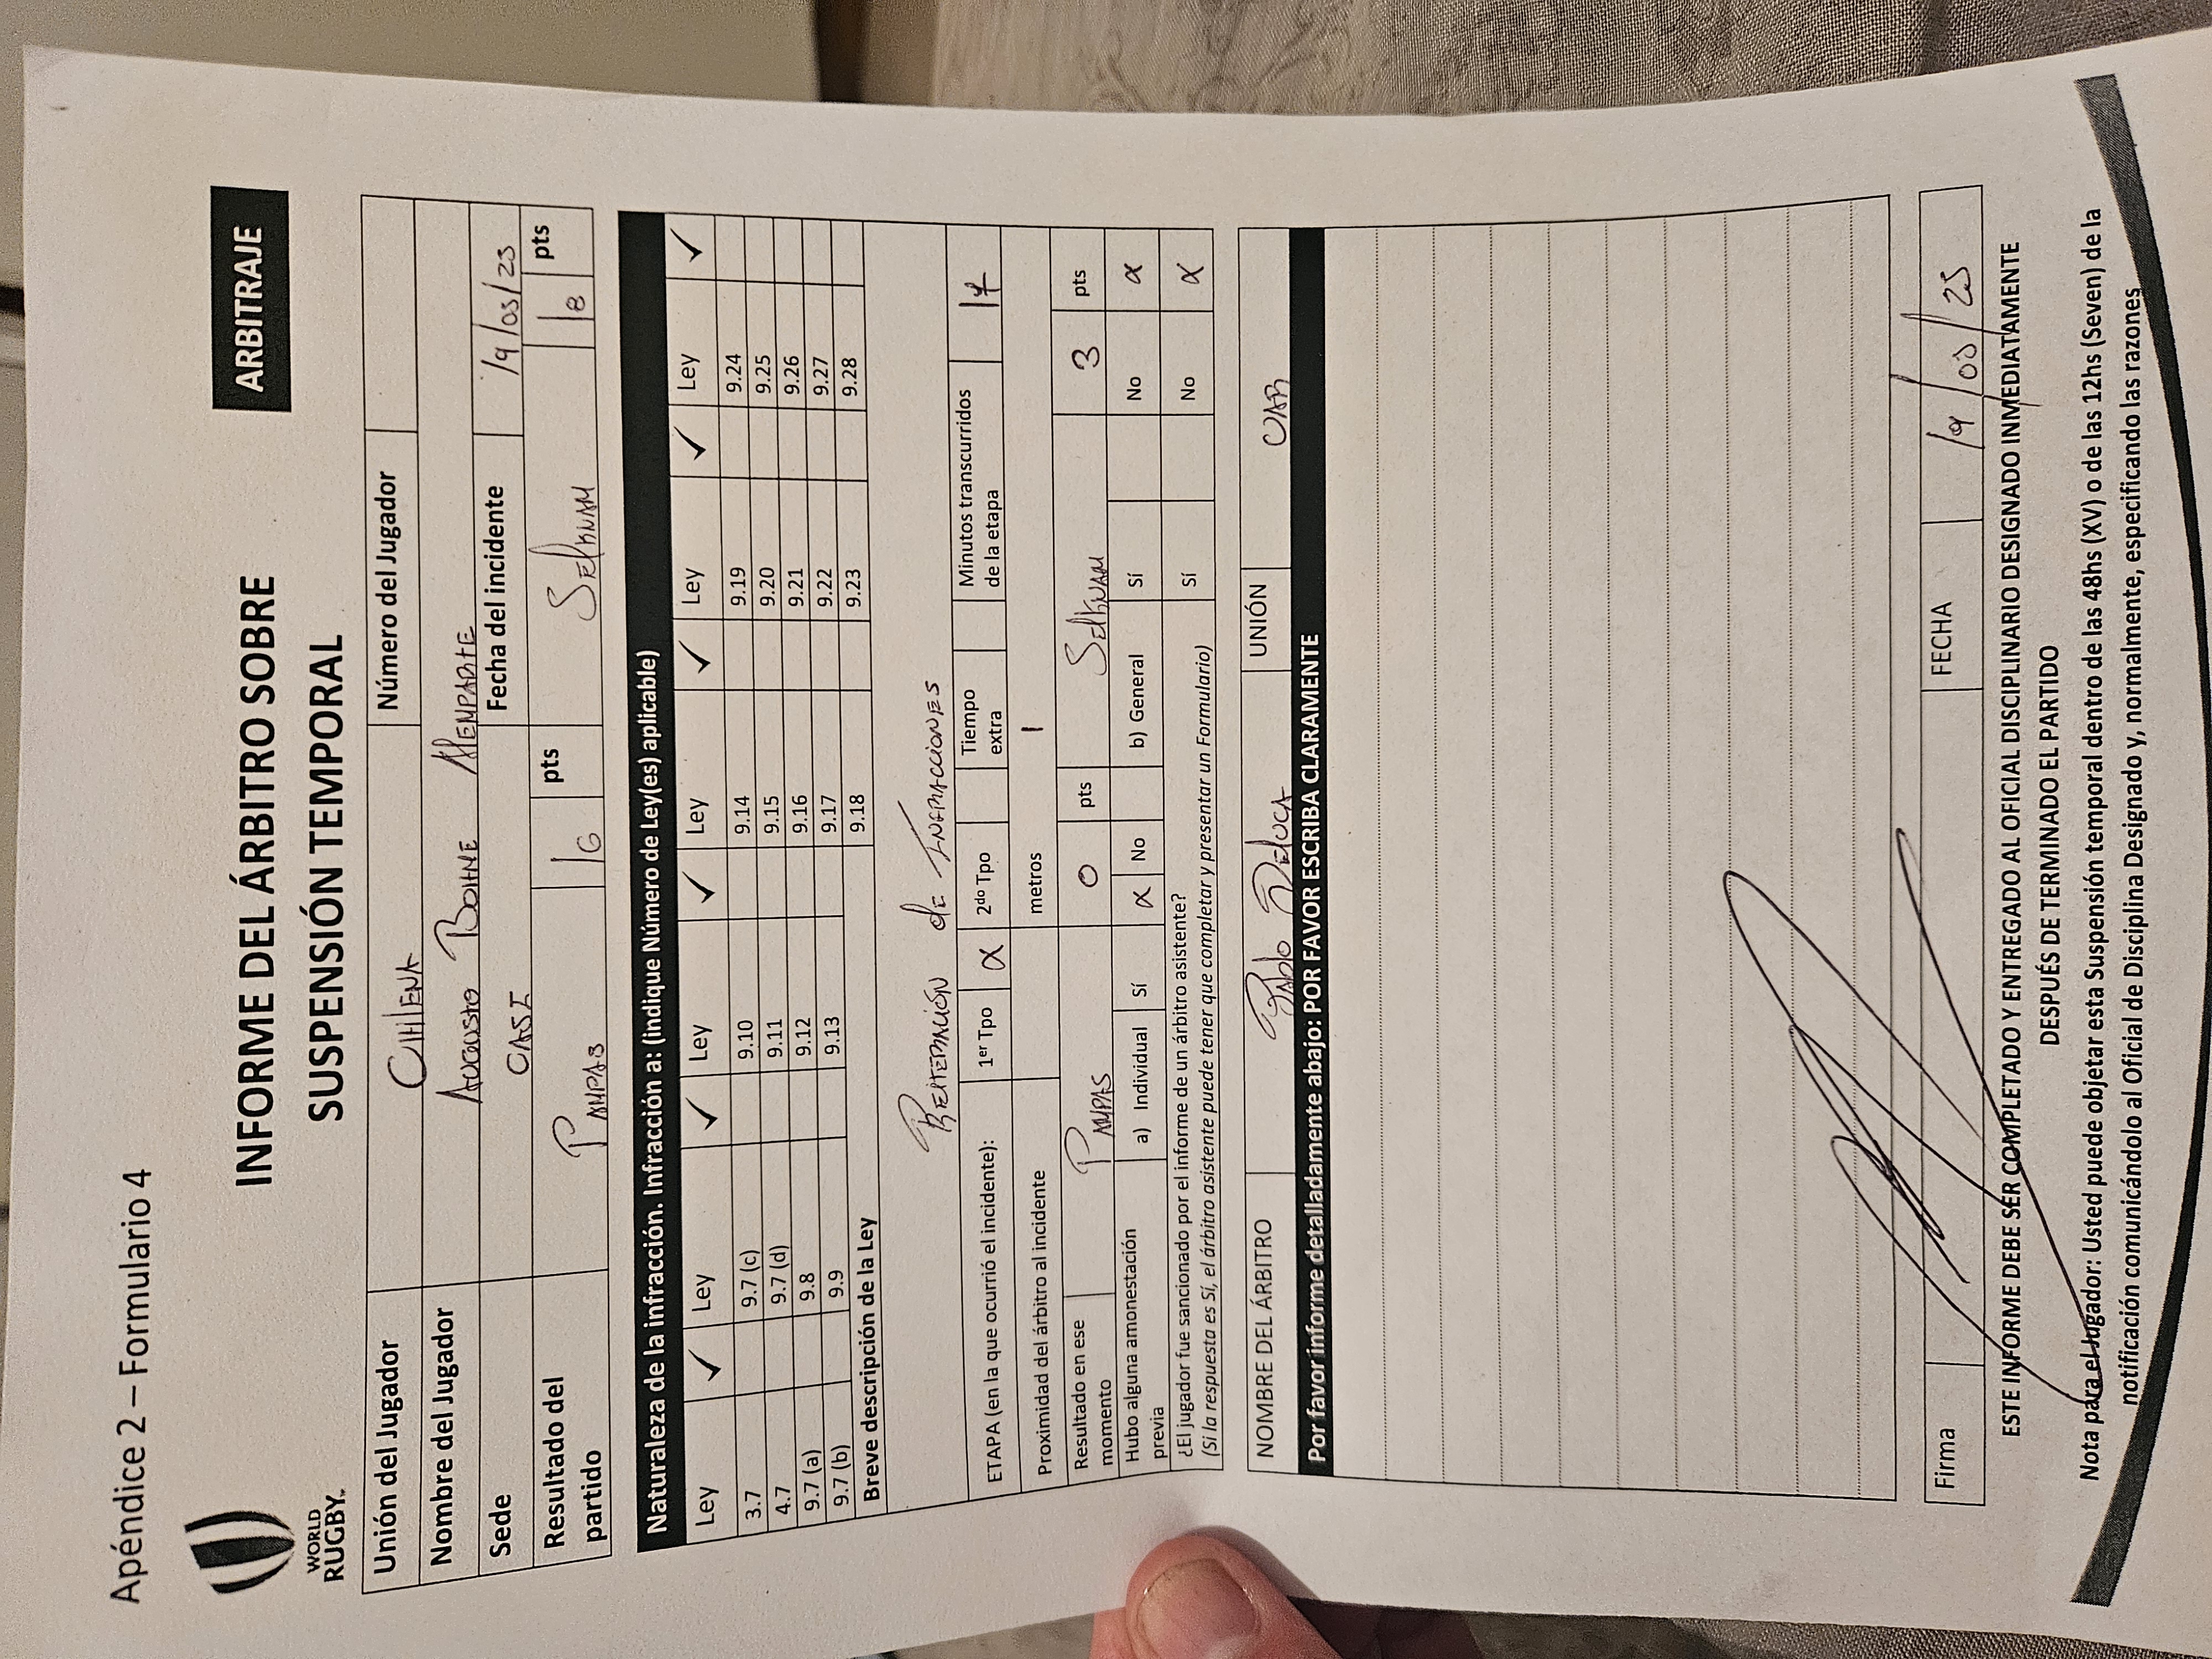 Apéndice 2 – Formulario 4
WORLD RUGBY.
ARBITRAJE
INFORME DEL ÁRBITRO SOBRE
SUSPENSIÓN TEMPORAL
Unión del Jugador CHILENA Número del Jugador
Nombre del Jugador AUGUSTO BOHME ALEMPARTE
Sede CASI Fecha del incidente 19/03/23
Resultado del partido PAMPAS 16 pts SELKNAM 18 pts
Naturaleza de la infracción. Infracción a: (indique Número de Ley(es) aplicable)
Ley ✓ Ley ✓ Ley ✓ Ley ✓ Ley ✓ Ley ✓
3.7 9.7 (c) 9.10 9.14 9.19 9.24
4.7 9.7 (d) 9.11 9.15 9.20 9.25
9.7 (a) 9.8 9.12 9.16 9.21 9.26
9.7 (b) 9.9 9.13 9.17 9.22 9.27
9.18 9.23 9.28
Breve descripción de la Ley
REITERACIÓN de INFRACCIONES
ETAPA (en la que ocurrió el incidente): 1er Tpo X 2do Tpo Tiempo extra Minutos transcurridos de la etapa 17
Proximidad del árbitro al incidente metros 1
Resultado en ese momento PAMPAS 0 pts SELKNAM 3 pts
Hubo alguna amonestación previa a) Individual Sí X No b) General Sí No X
¿El jugador fue sancionado por el informe de un árbitro asistente? Sí No X
(Si la respuesta es Sí, el árbitro asistente puede tener que completar y presentar un Formulario)
NOMBRE DEL ÁRBITRO Pablo Deluca UNIÓN UAR
Por favor informe detalladamente abajo: POR FAVOR ESCRIBA CLARAMENTE
Firma FECHA 19/03/23
ESTE INFORME DEBE SER COMPLETADO Y ENTREGADO AL OFICIAL DISCIPLINARIO DESIGNADO INMEDIATAMENTE
DESPUÉS DE TERMINADO EL PARTIDO
Nota para el Jugador: Usted puede objetar esta Suspensión temporal dentro de las 48hs (XV) o de las 12hs (Seven) de la
notificación comunicándolo al Oficial de Disciplina Designado y, normalmente, especificando las razones